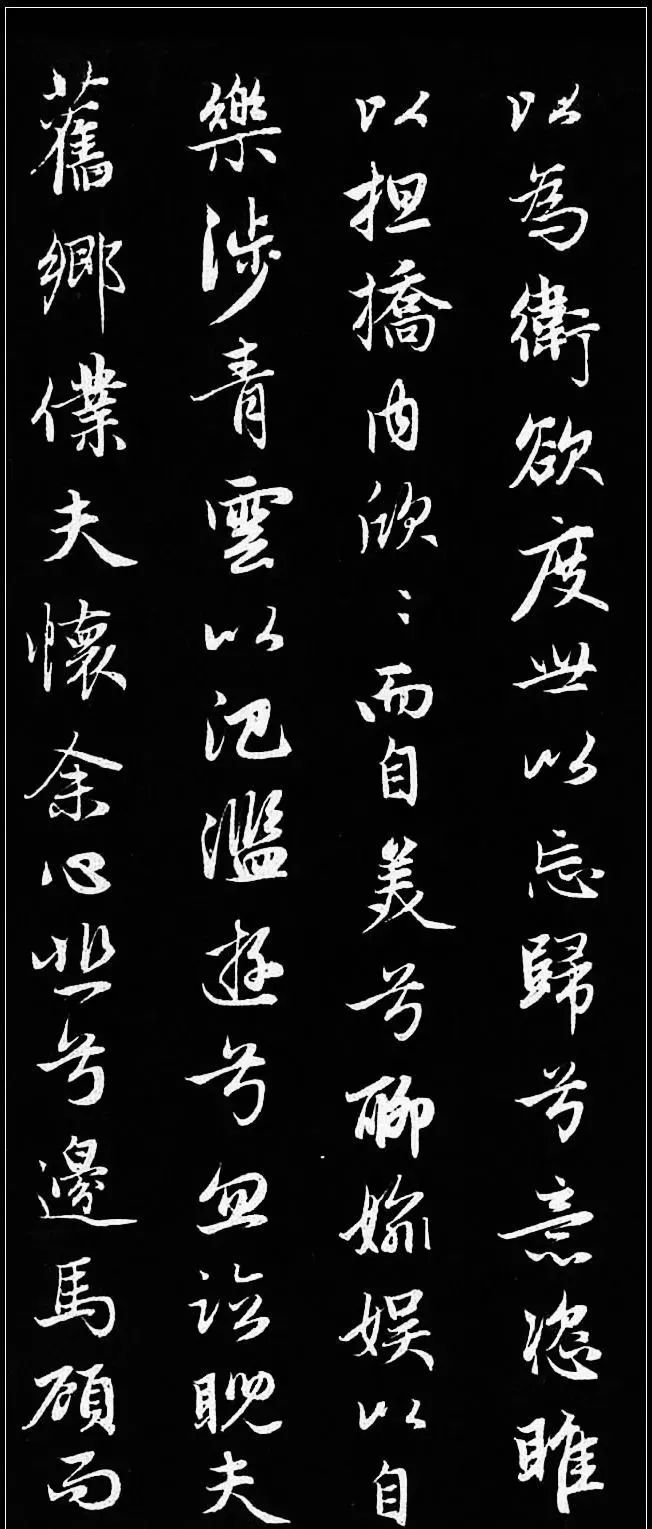 以為衛欲度世以忘歸兮意恣睢
以担撟内欣〻而自美兮聊媮娱以自
樂涉青雲以汜濫遊兮忽臨睨夫
舊鄉僕夫懷余心悲兮邊馬顧而